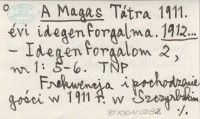 A Magas Tátra 1911.
évi idegenforgalma. 1912...
- Idegenforgalom 2,
nr 1: 5-6. TNP
Frekwencja i pochodzenie
gości w 1911 r. w Szczyrbskim
•/.